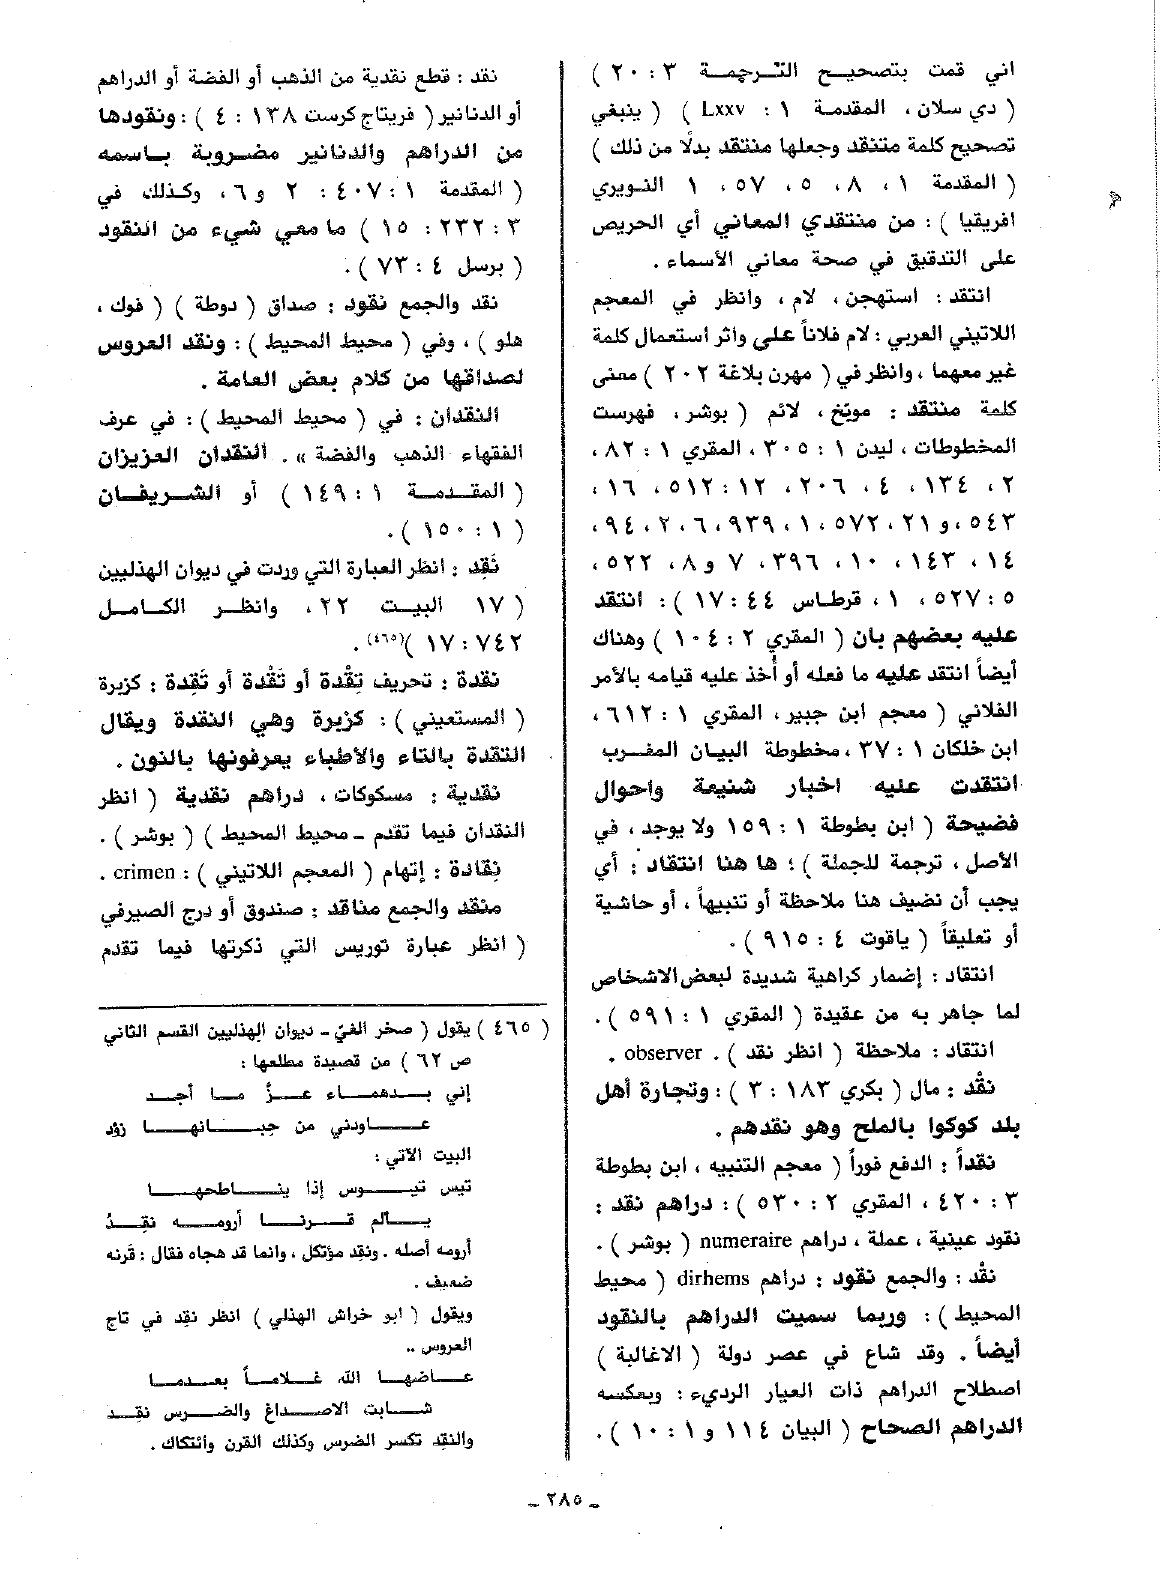 اني قمت بتصحيح الترجمة ٣ : ٢٠ )
( دي سلان ، المقدمة ١ : Lxxv ) ( ينبغي
تصحيح كلمة متنقد وجعلها منتقد بدلًا من ذلك )
( المقدمة ١ ، ٨ ، ٥ ، ٥٧ ، ١ النويري
افريقيا ) : من منتقدي المعاني أي الحريص
على التدقيق في صحة معاني الأسماء .
انتقد : استهجن ، لام ، وانظر في المعجم
اللاتيني العربي : لام فلاناً على واثر استعمال كلمة
غير معهما ، وانظر في ( مهرن بلاغة ٢٠٢ ) معنى
كلمة منتقد : موبّخ ، لائم ( بوشر ، فهرست
المخطوطات ، ليدن ١ : ٣٠٥ ، المقري ١ : ٨٢ ،
٢ ، ١٣٤ ، ٤ ، ٢٠٦ ، ١٢ : ٥١٢ ، ١٦ ،
٥٤٣ ، و ٢١ ، ٥٧٢ ، ١ ، ٩٣٩ ، ٦ ، ٢ ، ٩٤ ،
١٤ ، ١٤٣ ، ١٠ ، ٣٩٦ ، ٧ و ٨ ، ٥٢٢ ،
٥ : ٥٢٧ ، ١ ، قرطاس ٤٤ : ١٧ ) : انتقد
عليه بعضهم بان ( المقري ٢ : ١٠٤ ) وهناك
أيضاً انتقد عليه ما فعله أو أُخذ عليه قيامه بالأمر
الفلاني ( معجم ابن جبير ، المقري ١ : ٦١٢ ،
ابن خلكان ١ : ٣٧ ، مخطوطة البيان المغرب
انتقدت عليه اخبار شنيعة واحوال
فضيحة ( ابن بطوطة ١ : ١٥٩ ولا يوجد ، في
الأصل ، ترجمة للجملة ) ؛ ها هنا انتقاد : أي
يجب أن نضيف هنا ملاحظة أو تنبيهاً ، أو حاشية
أو تعليقاً ( ياقوت ٤ : ٩١٥ ) .
انتقاد : إضمار كراهية شديدة لبعض الاشخاص
لما جاهر به من عقيدة ( المقري ١ : ٥٩١ ) .
انتقاد : ملاحظة ( انظر نقد ) . observer .
نقْد : مال ( بكري ١٨٣ : ٣ ) : وتجارة أهل
بلد كوكوا بالملح وهو نقدهم .
نقداً : الدفع فوراً ( معجم التنبيه ، ابن بطوطة
٣ : ٤٢٠ ، المقري ٢ : ٥٣٠ ) : دراهم نقد :
نقود عينية ، عملة ، دراهم numeraire ( بوشر ) .
نقْد : والجمع نقود : دراهم dirhems ( محيط
المحيط ) : وربما سميت الدراهم بالنقود
أيضاً . وقد شاع في عصر دولة ( الاغالبة )
اصطلاح الدراهم ذات العيار الرديء : وبعكسه
الدراهم الصحاح ( البيان ١١٤ و ١ : ١٠ ) .
نقد : قطع نقدية من الذهب أو الفضة أو الدراهم
أو الدنانير ( فريتاج كرست ١٣٨ : ٤ ) : ونقودها
من الدراهم والدنانير مضروبة باسمه
( المقدمة ١ : ٤٠٧ : ٢ و ٦ ، وكذلك في
٣ : ٢٣٢ : ١٥ ) ما معي شيء من النقود
( برسل ٤ : ٧٣ ) .
نقد والجمع نقود : صداق ( دوطة ) ( فوك ،
هلو ) ، وفي ( محيط المحيط ) : ونقد العروس
لصداقها من كلام بعض العامة .
النقدان : في ( محيط المحيط ) : في عرف
الفقهاء الذهب والفضة » . النقدان العزيزان
( المقدمة ١ : ١٤٩ ) أو الشريفان
( ١ : ١٥٠ ) .
نَقِد : انظر العبارة التي وردت في ديوان الهذليين
( ١٧ البيت ٢٢ ، وانظر الكامل
٧٤٢ : ١٧ )(٤٦٥) .
نقدة : تحريف تِقْدة أو تَقْدة أو تَقِدة : كزبرة
( المستعيني ) : كزبرة وهي النقدة ويقال
التقدة بالتاء والأطباء يعرفونها بالنون .
نقدية : مسكوكات ، دراهم نقدية ( انظر
النقدان فيما تقدم ــ محيط المحيط ) ( بوشر ) .
نِقادة : إتهام ( المعجم اللاتيني ) : crimen .
منقد والجمع مناقد : صندوق أو درج الصيرفي
( انظر عبارة توريس التي ذكرتها فيما تقدم
( ٤٦٥ ) يقول ( صخر الغيّ ــ ديوان الهذليين القسم الثاني
ص ٦٢ ) من قصيدة مطلعها :
إني بــدهماء عــزّ مــا أجــد
عــاودني من حبــابهــا زؤد
البيت الآتي :
تيس تيــوس إذا ينــاطحهــا
يــألم قــرنــا أرومــه نقِــدُ
أرومه أصله . ونقِد مؤتكل ، وانما قد هجاه فقال : قَرنه
ضعيف .
ويقول ( ابو خراش الهذلي ) انظر نقِد في تاج
العروس ..
عــاضهــا اللّه غــلامــاً بعــدمــا
شــابت الاصــداغ والضــرس نقــد
والنقِد تكسر الضرس وكذلك القرن وائتكاك .
ــ ٢٨٥ ــ